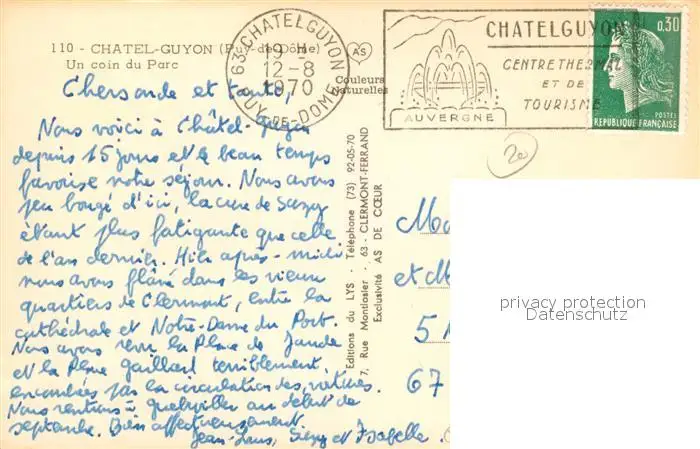 110 - CHATEL-GUYON (Puy-de-Dôme)
Un coin du Parc
63 CHATELGUYON
19 H
12-8
1970
PUY-DE-DOME
AS
Couleurs
Naturelles
CHATELGUYON
CENTRE THERMAL
ET DE
TOURISME
AUVERGNE
0,30
POSTES
RÉPUBLIQUE FRANÇAISE
20
Chers oncle et tante,
Nous voici à Châtel-Guyon
depuis 15 jours et le beau temps
favorise notre séjour. Nous avons
peu bougé d'ici, la cure de Suzy
étant plus fatigante que celle
de l'an dernier. Hier après-midi
nous avons flâné dans les vieux
quartiers de Clermont, entre la
cathédrale et Notre-Dame du Port.
Nous avons revu la Place de Jaude
et la Place Gaillard terriblement
encombrées par la circulation des voitures.
Nous rentrons à Guebwiller au début de
septembre. Bien affectueusement.
Jean-Louis, Suzy et Isabelle.
Editions du LYS - Téléphone (73) 92-05-70
7, Rue Montlosier - 63 - CLERMONT-FERRAND
Exclusivité AS DE CŒUR
et M
5
67
privacy protection
Datenschutz